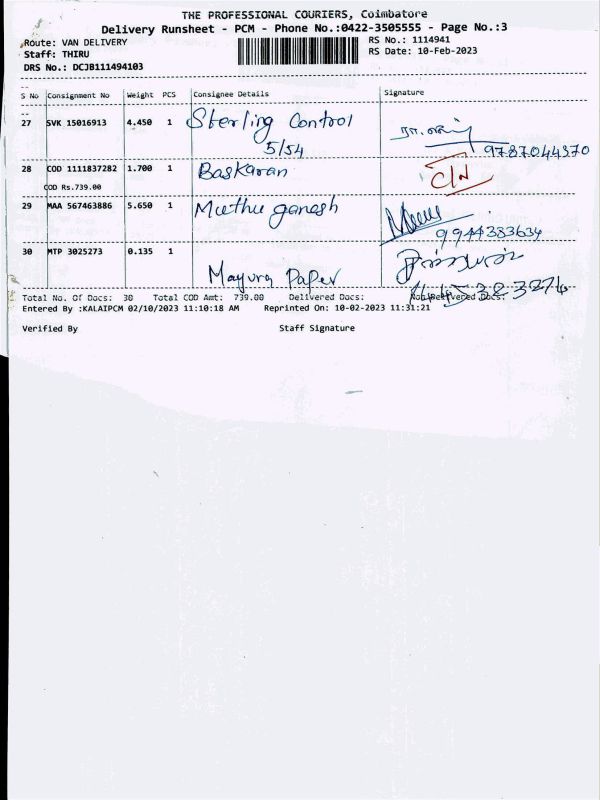 THE PROFESSIONAL COURIERS, Coimbatore
Delivery Runsheet - PCM - Phone No.:0422-3505555 - Page No.:3
Route: VAN DELIVERY
RS No.: 1114941
Staff: THIRU
RS Date: 10-Feb-2023
DRS No.: DCJB111494103
S No Consignment No Weight PCS Consignee Details Signature
27 SVK 15016913 4.450 1 Sterling Control
5/54
9787044370
28 COD 1111837282 1.700 1 Baskaran C/N
COD Rs.739.00
29 MAA 567463886 5.650 1 Muthu ganesh
9944383634
30 MTP 3025273 0.135 1
Mayura Paper
Total No. Of Docs: 30 Total COD Amt: 739.00 Delivered Docs: Non Delivered Docs:
Entered By :KALAIPCM 02/10/2023 11:10:18 AM Reprinted On: 10-02-2023 11:31:21
Verified By Staff Signature